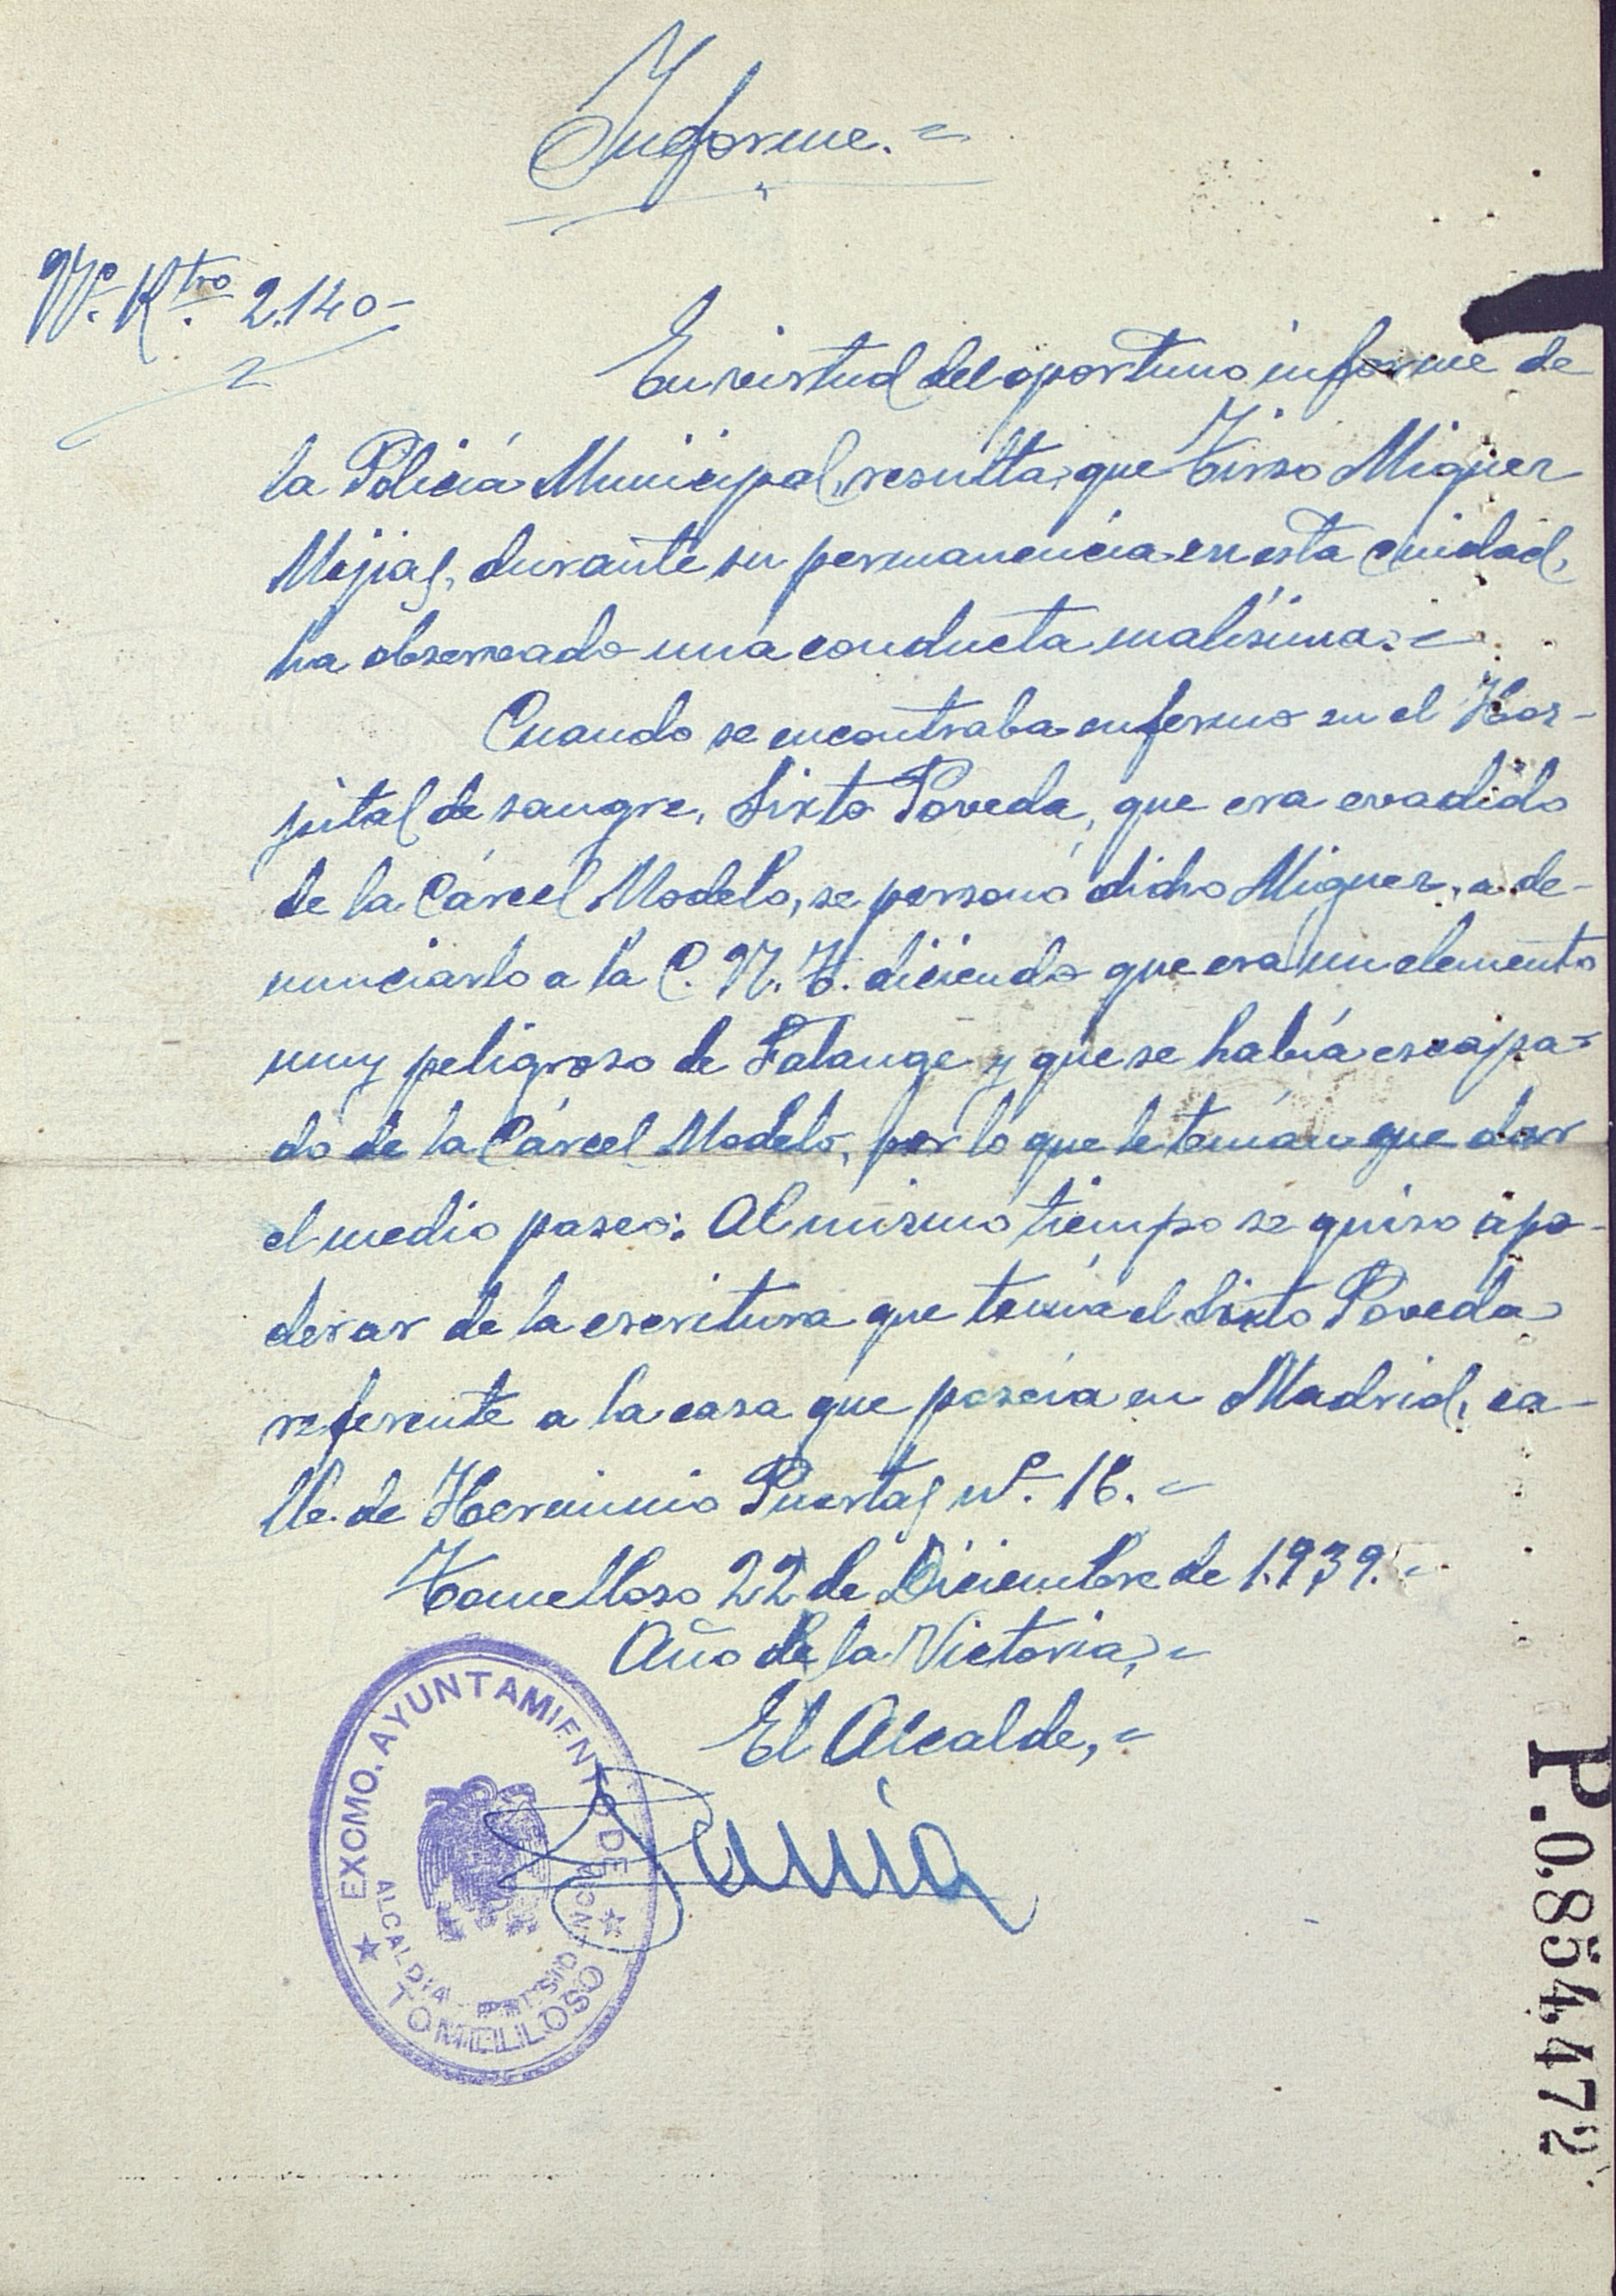 Informe.=
Nº. Rtro. 2.140-
En virtud del oportuno informe de
la Policía Municipal, resulta, que Tirso Miguez
Mejias, durante su permanencia en esta ciudad,
ha observado una conducta malísima.=
Cuando se encontraba enfermo en el Hos-
pital de sangre, Sixto Poveda, que era evadido
de la Cárcel Modelo, se personó dicho Miguez, a de-
nunciarlo a la C. N. T. diciendo que era un elemento
muy peligroso de Falange y que se había escapa-
do de la Cárcel Modelo, por lo que le tenían que dar
el medio paseo. Al mismo tiempo se quiso apo-
derar de la escritura que tenía el Sixto Poveda
referente a la casa que poseía en Madrid, ca-
lle de Herminio Puertas nº. 16.=
Tomelloso 22 de Diciembre de 1.939.-
Año de la Victoria,=
El Alcalde,=
EXCMO. AYUNTAMIENTO DE
ALCALDIA PRESIDENCIA
TOMELLOSO
P.0.854.472